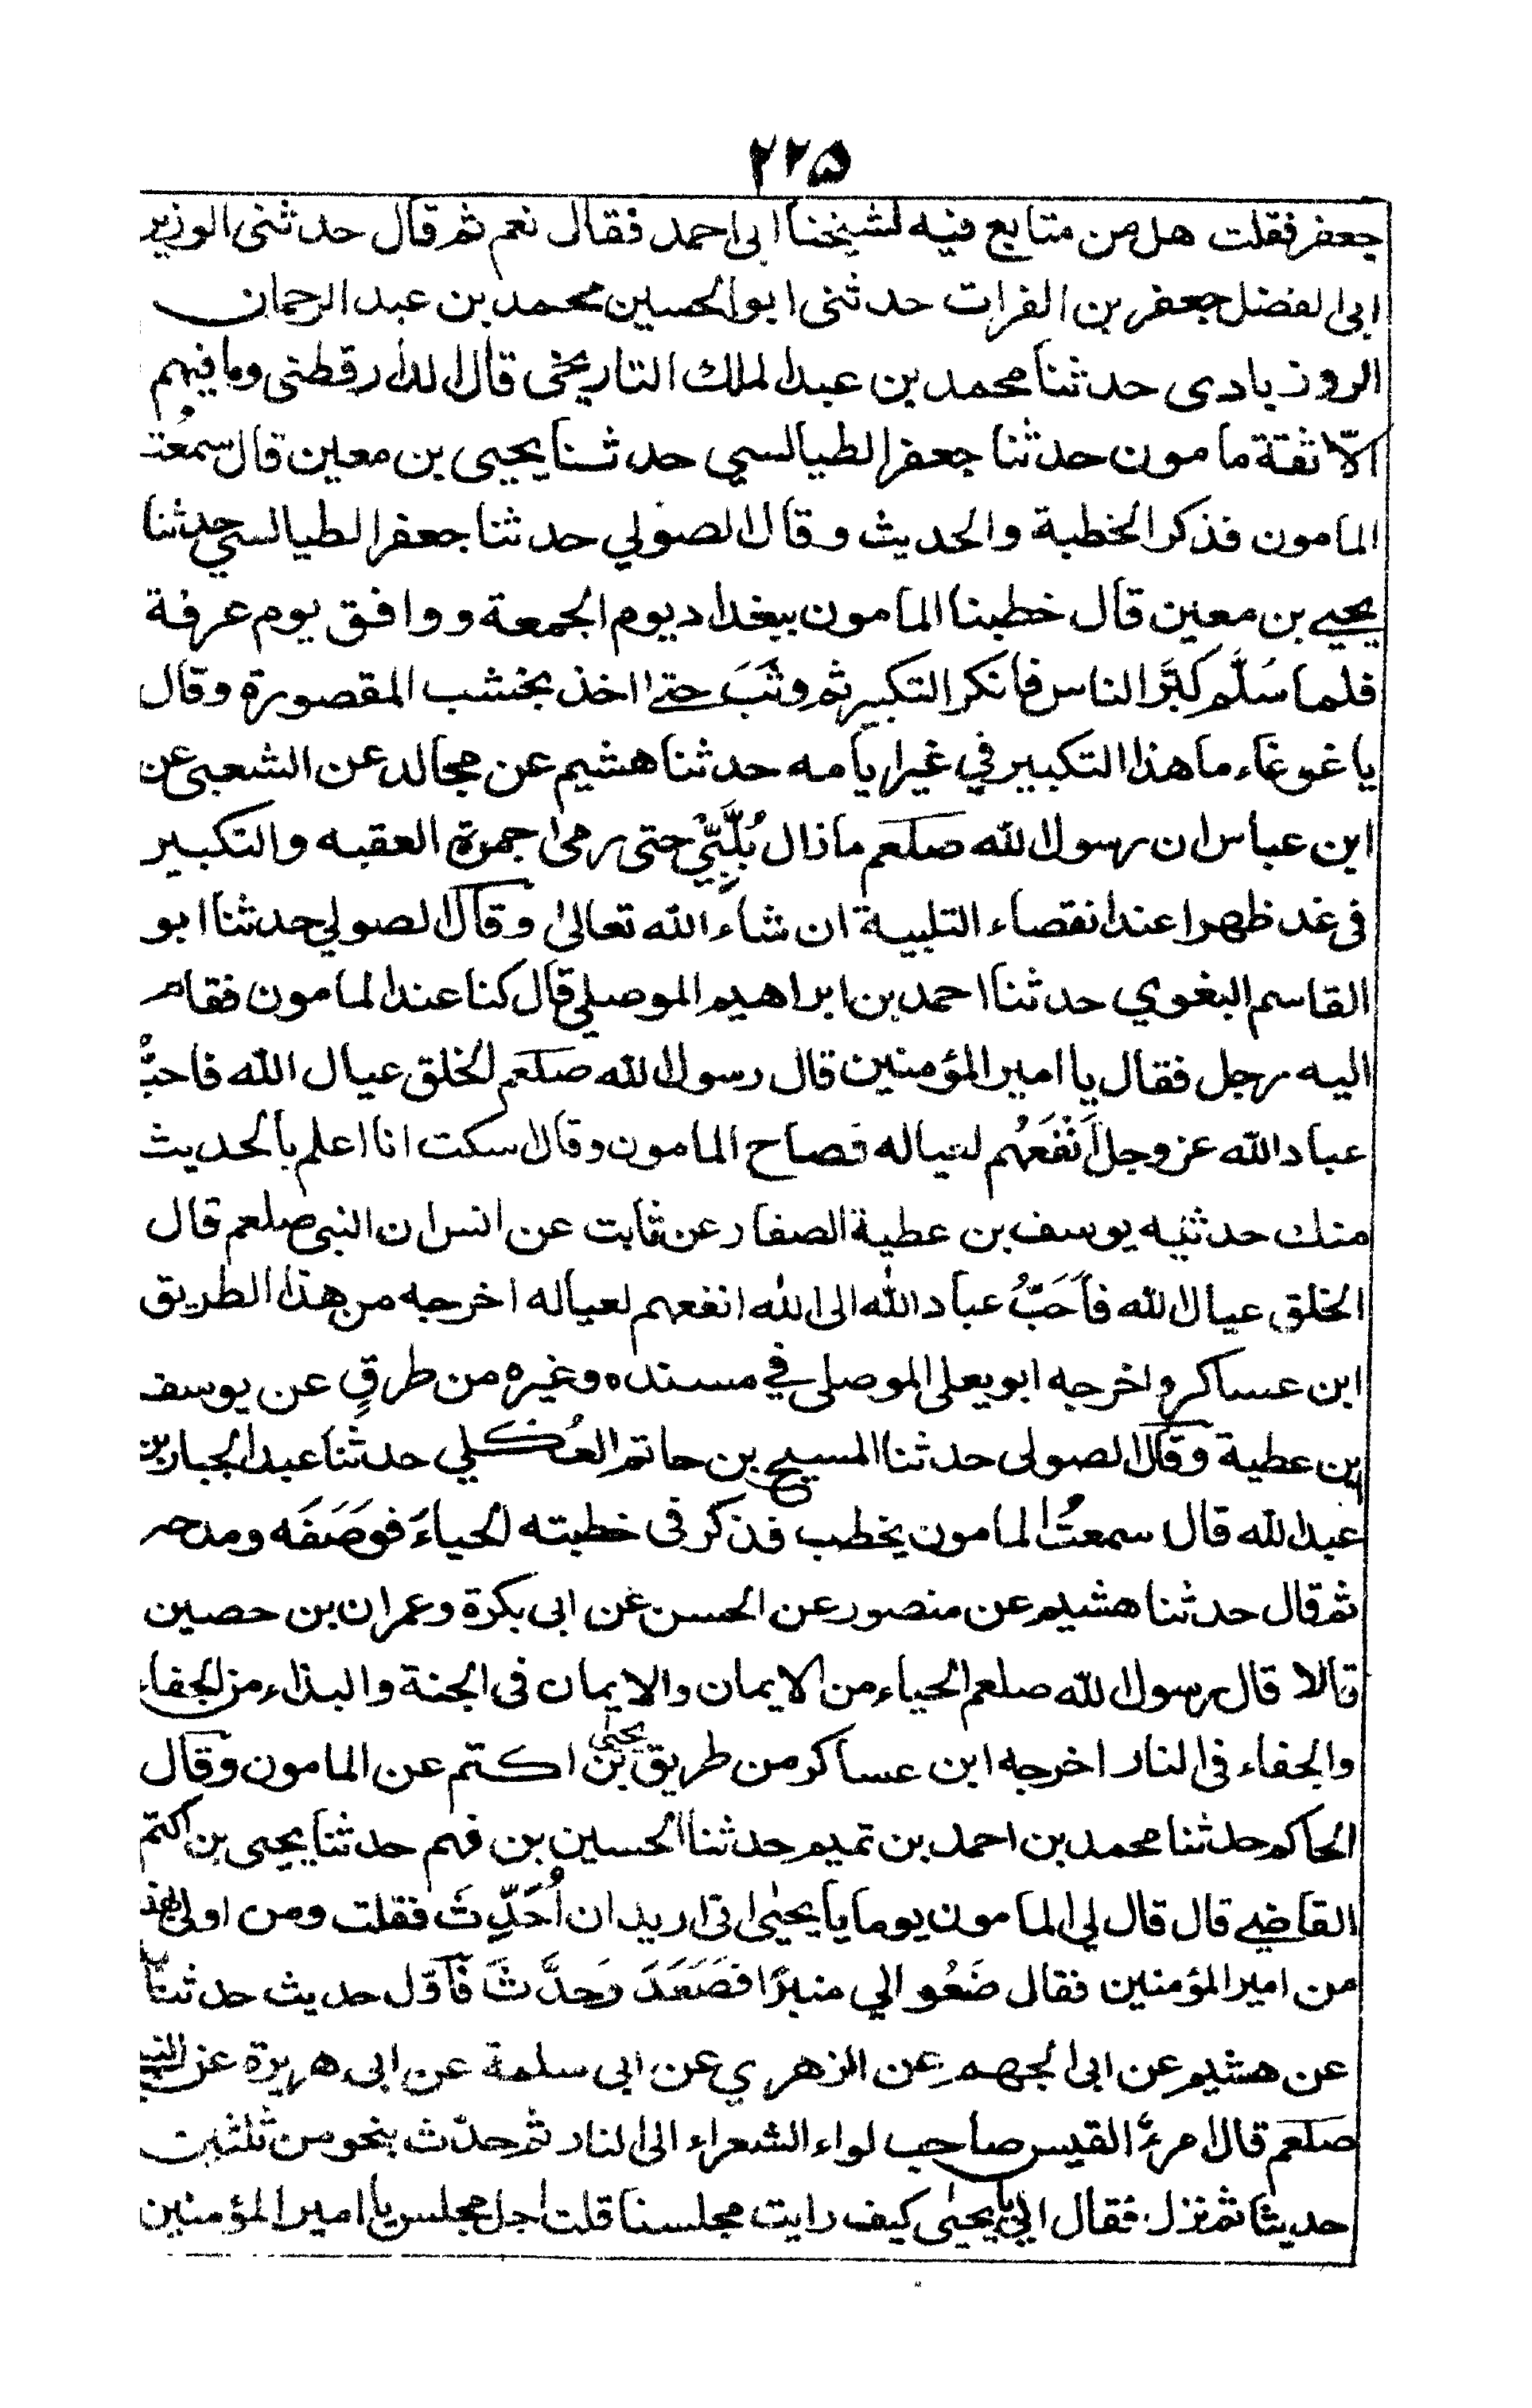 ۲۲۵
جعفر فقلت هل من متابع فيه لشيخنا ابى احمد فقال نعم ثم قال حدثنى الوزير
ابى الفضل جعفر بن الفرات حدثنى ابو الحسين محمد بن عبد الرحمان
الروزبادى حدثنا محمد بن عبد الملك التاريخى قال الدارقطنى وما فيهم
الّا ثقة مامون حدثنا جعفر الطيالسي حدثنا يحيى بن معين قال سمعُت
المامون فذكر الخطبة والحديث وقال الصولي حدثنا جعفر الطيالسي حدثنا
يحيے بن معين قال خطبنا المامون ببغداد يوم الجمعة ووافق يوم عرفة
فلما سَلَّم كَبَّر الناس فانكر التكبير ثم وثَبَ حتے اخذ بخشب المقصورة وقال
يا غوغاء ما هذا التكبير في غير ايامه حدثنا هشيم عن مجالد عن الشعبى عن
ابن عباس ان رسول الله صلعم ما زال يُلَبِّيْ حتى رمى جمرة العقبه والتكبير
فى غد ظهرا عند انقصاء التلبية ان شاء الله تعالىٰ وقال الصولي حدثنا ابو
القاسم البغوي حدثنا احمد بن ابراهيم الموصلي قال كنا عند المامون فقام
اليه رجل فقال يا امير المؤمنين قال رسول الله صلعم الخلق عيال الله فاحبُّ
عباد الله عز وجل اَنْفَعُهم لعياله فصاح المامون وقال اسكت انا اعلم بالحديث
منك حدثنيه يوسف بن عطية الصفار عن ثابت عن انس ان النبى صلعم قال
الخلق عيال الله فاَحَبُّ عباد الله الى الله انفعهم لعياله اخرجه من هذا الطريق
ابن عساكر واخرجه ابو يعلى الموصلى في مسنده وغيره من طرقٍ عن يوسف
بن عطية وقال الصولى حدثنا المسيح بن حاتم العُكلي حدثنا عبد الجبار بن
عبد الله قال سمعتُ المامون يخطب فذكر فى خطبته الحياءَ فوَصَفَه ومدحه
ثم قال حدثنا هشيم عن منصور عن الحسن عن ابى بكرة وعمران بن حصين
قالا قال رسول الله صلعم الحياء من الايمان والايمان فى الجنة والبذاء من الجفاء
والجفاء فى النار اخرجه ابن عساكر من طريق يحيٰى بن اكتم عن المامون وقال
الحاكم حدثنا محمد بن احمد بن تميم حدثنا الحسين بن فهم حدثنا يحيى بن اكتم
القاضے قال قال لي المامون يوما يا يحيٰى انى اريد ان اُحَدِّثَ فقلت ومن اولى بهذا
من امير المؤمنين فقال ضَعُوا لي منبرًا فصَعَدَ وَحدَّثَ فاَوّل حديث حدثنا
عن هشيم عن ابى الجهم عن الزهري عن ابى سلمة عن ابى هريرة عن النبى
صلعم قال امرءُ القيس صاحب لواء الشعراء الى النار ثم حدّث بنحو من ثلثين
حديثا ثم نزل فقال الي يا يحيٰى كيف رايت مجلسنا قلت اجل مجلس يا امير المؤمنين